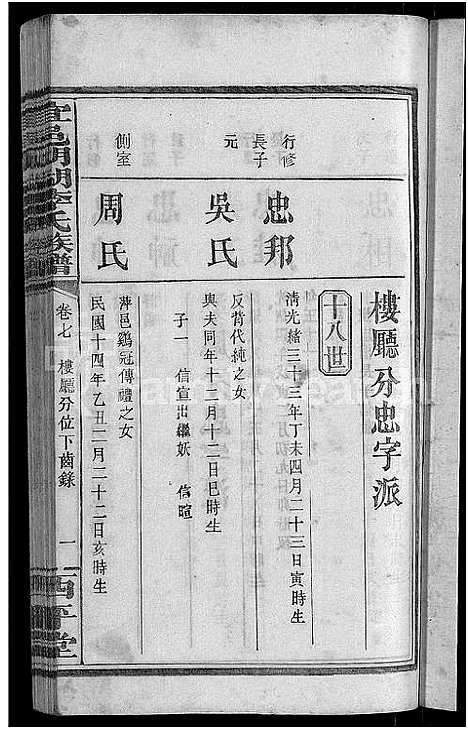 樓廳分忠字派
十八世
行修
長子
元
忠邦
清光緒三十三年丁未四月二十三日寅時生
吳氏
反背代純之女
與夫同年十二月十二日巳時生
子一 信宣出繼妖 信暄
側室
周氏
萍邑鷄冠傳禮之女
民國十四年乙丑二月二十二日亥時生
氏族譜
卷七 樓廳分位下齒錄 一
西平堂